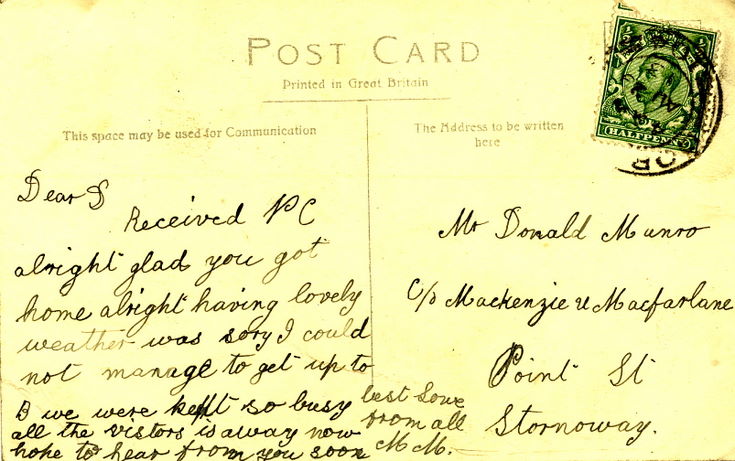 POST CARD
Printed in Great Britain
This space may be used for Communication
The Address to be written
here
HALFPENNY
Dear D
Received PC
alright glad you got
home alright having lovely
weather was sory I could
not manage to get up to
B we were keptt so busy
all the vistors is away now
hope to hear from you soon
best love
from all
M M.
Mr Donald Munro
C/o Mackenzie & Macfarlane
Point St
Stornoway.